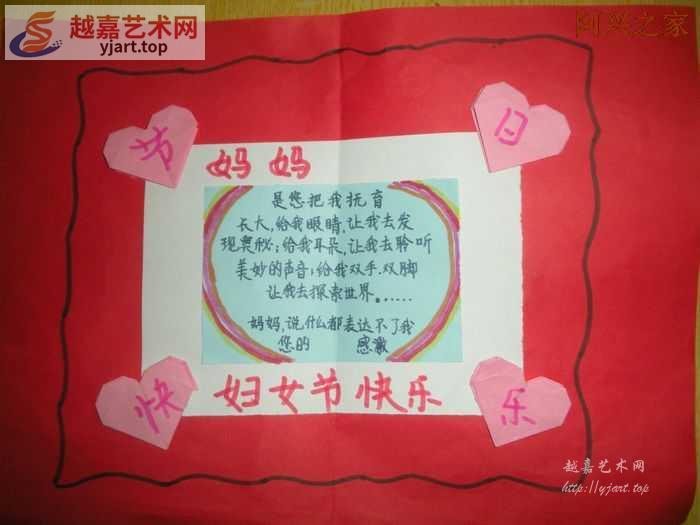 越嘉艺术网
yjart.top
节
日
妈妈
是您把我抚育
长大,给我眼睛,让我去发
现奥秘;给我耳朵,让我去聆听
美妙的声音;给我双手.双脚
让我去探索世界。.....
妈妈,说什么都表达不了我
您的 感激
快
妇女节快乐
乐
越嘉艺术网
http://yjart.top